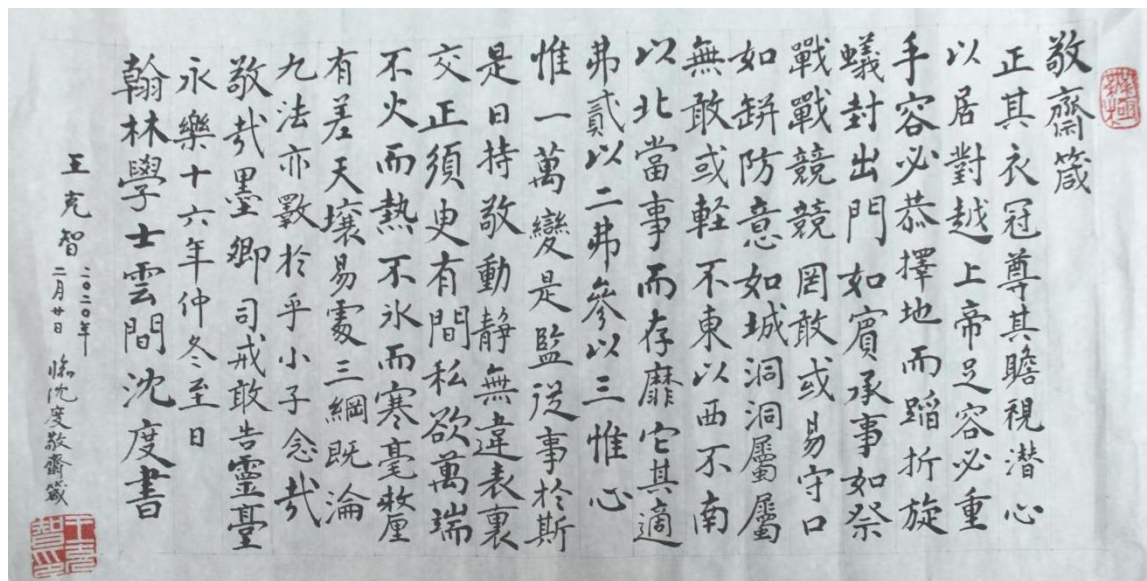 敬齋箴
正其衣冠尊其瞻視潜心
以居對越上帝足容必重
手容必恭擇地而蹈折旋
蟻封出門如賓承事如祭
戰戰競競罔敢或易守口
如缾防意如城洞洞屬屬
無敢或軽不東以西不南
以北當事而存靡它其適
弗貳以二弗參以三惟心
惟一萬變是監從事於斯
是曰持敬動静無違表裏
交正須臾有間私欲萬端
不火而熱不氷而寒毫釐
有差天壤易處三綱既淪
九法亦斁於乎小子念哉
敬哉墨卿司戒敢告靈臺
永樂十六年仲冬至日
翰林學士雲間沈度書
王克智
二〇二〇年
二月廿日
臨沈度敬齋箴
王克智印